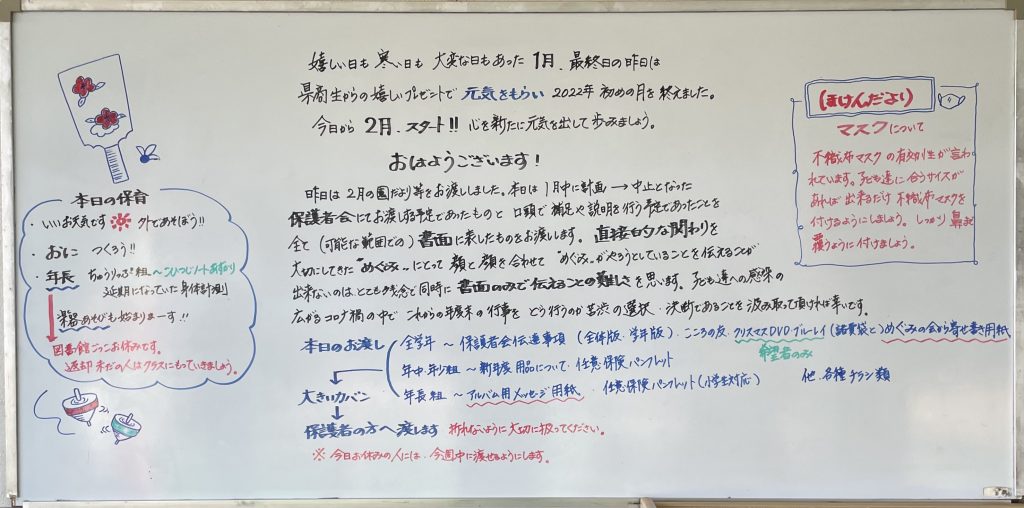 嬉しい日も 寒い日も 大変な日もあった 1月、最終日の昨日は
県商生からの嬉しいプレゼントで 元気をもらい 2022年 初めの月を 終えました。
今日から 2月、スタート!! 心を新たに元気を出して歩みましょう。
おはようございます!
昨日は2月の園だより等をお渡ししました。本日は 1月中に計画 → 中止となった
保護者会にてお渡し予定であったものと 口頭で 補足や説明を行う予定であったことを
全て (可能な範囲での) 書面に表したものをお渡しします。直接的な関わりを
大切にしてきた "めぐみ" にとって 顔と顔を合わせて "めぐみ"がやろうとしていることを伝えることが
出来ないのは、とても残念と同時に 書面のみで伝えることの難しさを思います。子ども達への感染の
広がるコロナ禍の中で これからの年度末の行事を どう行うのか 苦渋の選択・決断であることを 汲み取って頂ければ幸いです。
本日のお渡し
全学年 〜 保護者会伝達事項 (全体版・学年版)・こころの友・クリスマスDVD・ブルーレイ (諸費袋と)めぐみの会から寄せ書き用紙
希望者のみ
年中・年少組 〜 新年度用品について・任意保険パンフレット
年長組 〜 アルバム用メッセージ用紙・任意保険パンフレット(小学生対応)
他、各種チラシ類
大きいカバン
保護者の方へ渡します 折れないように大切に扱ってください。
※ 今日お休みの人には、今週中に渡せるようにします。
本日の保育
・いいお天気です 外であそぼう!!
・おに つくろう!!
・年長 ちゅうりっぷ組〜こひつじノートあずかり
延期になっていた身体計測
楽器あそびも始まりまーす!!
図書館ごっこお休みです。
返却まだの人はクラスにもっていきましょう。
ほけんだより
マスクについて
不織布マスクの有効性が言わ
れています。子ども達に合うサイズが
あれば 出来るだけ 不織布マスクを
付けるようにしましょう。しっかり 鼻まで
覆うように付けましょう。